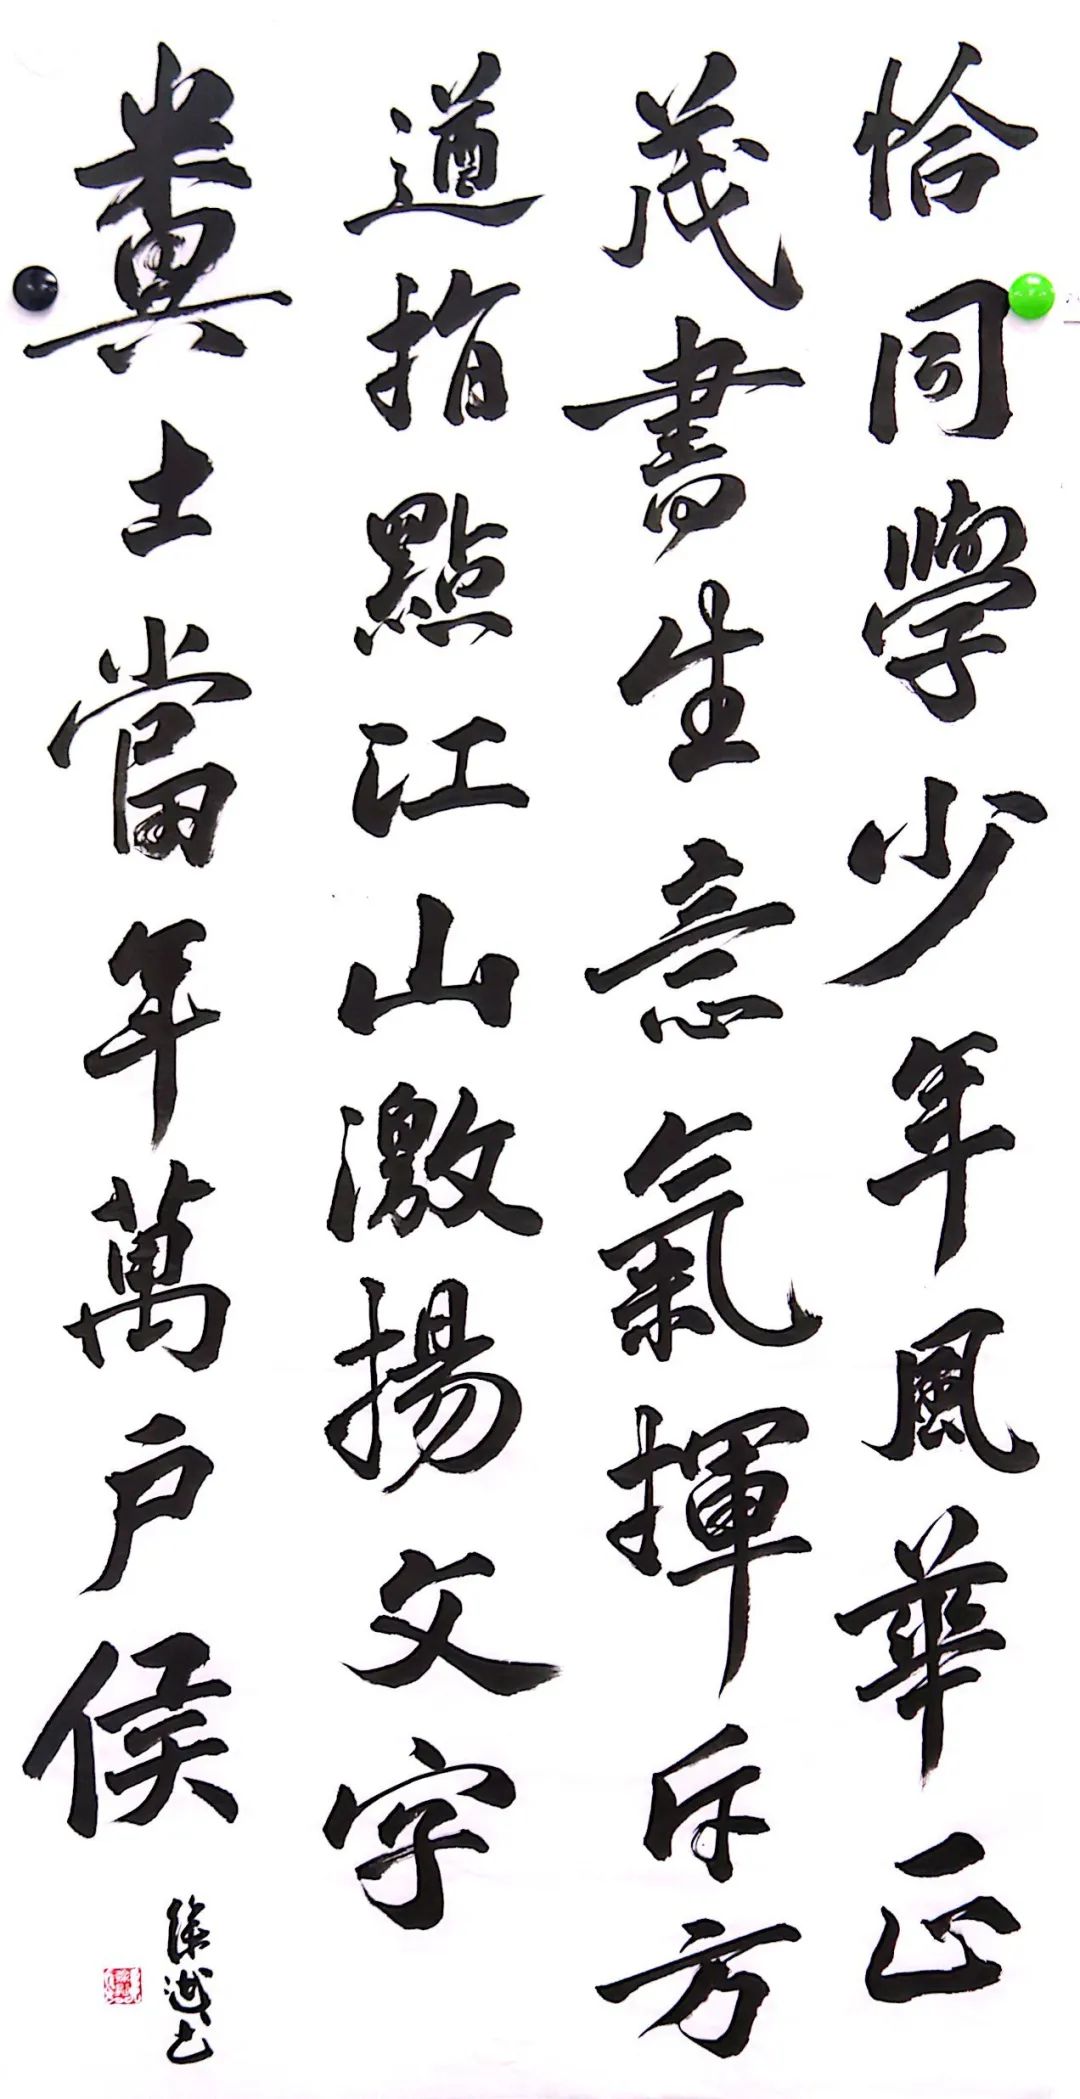 恰同學少年風華正
茂書生意氣揮斥方
遒指點江山激揚文字
糞土當年萬戶侯